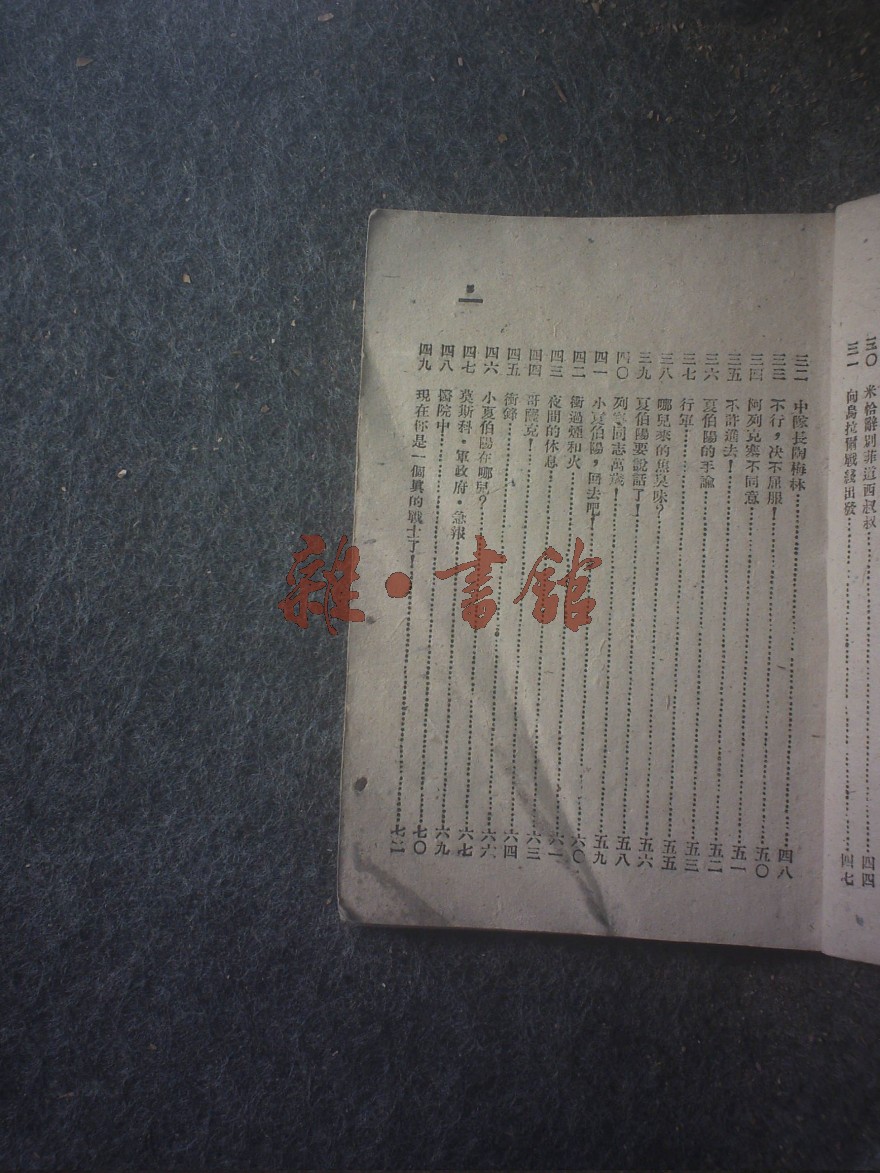 三〇 米恰辭別菲道西叔叔……四四
三一 向烏拉爾戰綫出發……四七
三二 中隊長陶梅林……四八
三三 不行，决不屈服！……五〇
三四 阿列克塞不同意……五一
三五 不許進去！……五二
三六 夏伯陽的手諭……五三
三七 行軍……五五
三八 哪兒來的焦臭味？……五六
三九 夏伯陽要說話了！……五八
四〇 列寧同志萬歲！……五九
四一 小夏伯陽，回去吧！……六〇
四二 衝過煙和火……六一
四三 夜間的休息……六三
四四 哥薩克！……六四
四五 衝鋒……六六
四六 小夏伯陽在哪兒？……六七
四七 莫斯科·軍政府·急報……六九
四八 醫院中……七〇
四九 現在你是一個真的戰士了！……七二
雜·書館